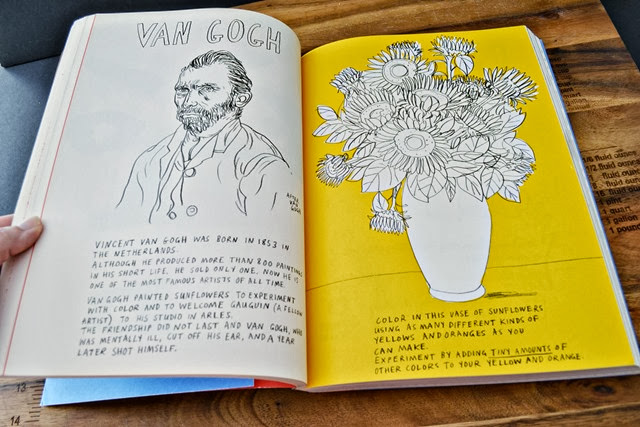 VAN GOGH
AFTER
VAN
GOGH
VINCENT VAN GOGH WAS BORN IN 1853 IN
THE NETHERLANDS.
ALTHOUGH HE PRODUCED MORE THAN 800 PAINTINGS
IN HIS SHORT LIFE, HE SOLD ONLY ONE. NOW HE IS
ONE OF THE MOST FAMOUS ARTISTS OF ALL TIME
VAN GOGH PAINTED SUNFLOWERS TO EXPERIMENT
WITH COLOR AND TO WELCOME GAUGUIN (A FELLOW
ARTIST) TO HIS STUDIO IN ARLES.
THE FRIENDSHIP DID NOT LAST AND VAN GOGH, WHO
WAS MENTALLY ILL, CUT OFF HIS EAR, AND A YEAR
LATER SHOT HIMSELF.
COLOR IN THIS VASE OF SUNFLOWERS
USING AS MANY DIFFERENT KINDS OF
YELLOWS AND ORANGES AS YOU
CAN MAKE.
EXPERIMENT BY ADDING TINY AMOUNTS OF
OTHER COLORS TO YOUR YELLOW AND ORANGE.
fluid ounces
fluid ounces
1 quart
13
14